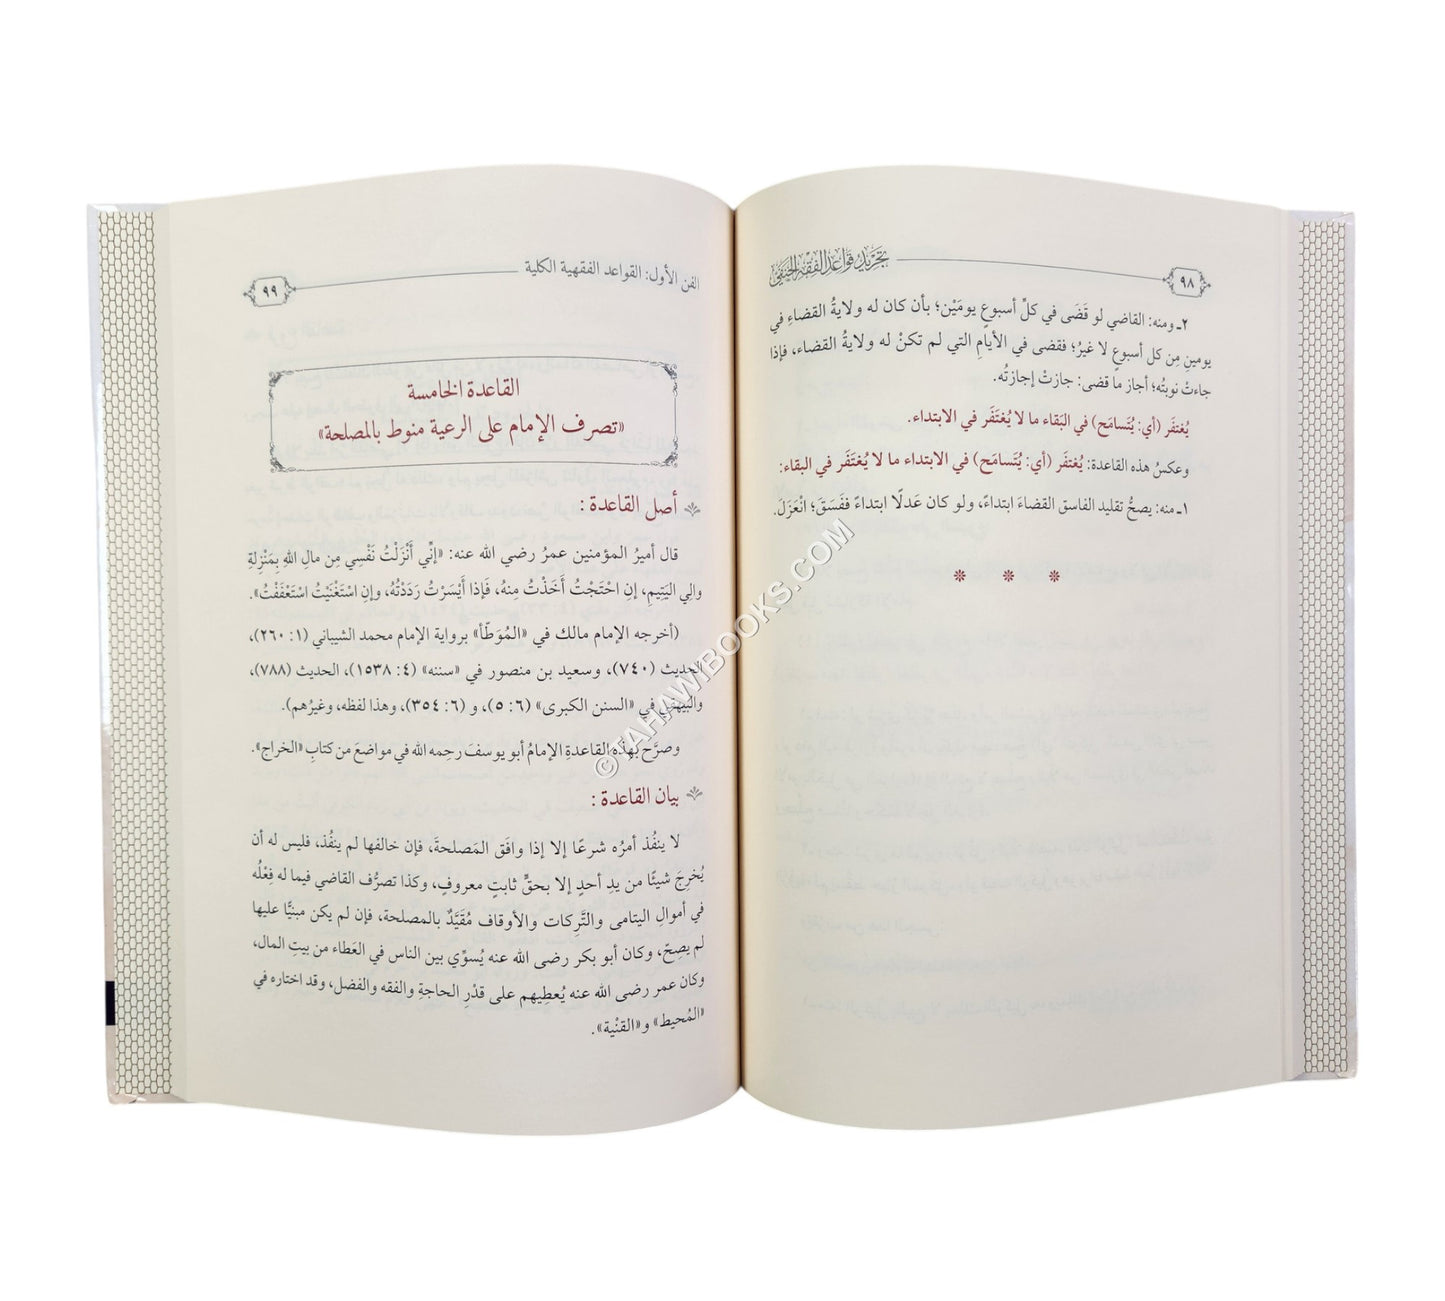 تجريد قواعد الفقه الحنفي
٩٨
٢ـ ومنه: القاضي لو قَضَى في كلِّ أسبوعٍ يومَيْن؛ بأن كان له ولايةُ القضاءِ في
يومينِ مِن كل أسبوعٍ لا غيرُ؛ فقضى في الأيامِ التي لم تكنْ له ولايةُ القضاء، فإذا
جاءتْ نوبتُه؛ أجاز ما قضى: جازتْ إجازتُه.
يُغتفَر (أي: يُتَسامَح) في البَقاء ما لا يُغْتَفَر في الابتداء.
وعكسُ هذه القاعدة: يُغتفَر (أي: يُتَسامَح) في الابتداء ما لا يُغْتَفَر في البقاء:
١ـ منه: يصحُّ تقليد الفاسق القضاءَ ابتداءً، ولو كان عَدلًا ابتداءً ففَسَقَ؛ انْعَزَلَ.
الفن الأول: القواعد الفقهية الكلية
٩٩
القاعدة الخامسة
«تصرف الإمام على الرعية منوط بالمصلحة»
أصل القاعدة:
قال أميرُ المؤمنين عمرُ رضي الله عنه: «إنِّي أَنْزَلْتُ نَفْسِي مِن مالِ اللهِ بِمَنْزِلةِ
والِي اليَتِيمِ، إنِ احْتَجْتُ أَخَذْتُ مِنهُ، فَإذا أَيْسَرْتُ رَدَدْتُهُ، وإنِ اسْتَغْنَيْتُ اسْتَعْفَفْتُ».
(أخرجه الإمام مالك في «المُوَطَّأ» برواية الإمام محمد الشيباني (١: ٢٦٠)،
الحديث (٧٤٠)، وسعيد بن منصور في «سننه» (٤: ١٥٣٨)، الحديث (٧٨٨)،
والبيهقي في «السنن الكبرى» (٦: ٥)، و (٦: ٣٥٤)، وهذا لفظه، وغيرُهم).
وصرَّح بهذه القاعدةِ الإمامُ أبو يوسفَ رحمه الله في مواضعَ من كتابِ «الخراج».
بيان القاعدة:
لا ينفُذ أمرُه شرعًا إلا إذا وافَق المَصلحةَ، فإن خالفها لم ينفُذ، فليس له أن
يُخرِجَ شيئًا من يدِ أحدٍ إلا بحقٍّ ثابتٍ معروفٍ، وكذا تصرُّف القاضي فيما له فِعْلُه
في أموالِ اليتامى والتَّرِكات والأوقاف مُقَيَّدٌ بالمصلحة، فإن لم يكن مبنيًّا عليها
لم يصِحّ، وكان أبو بكر رضى الله عنه يُسوِّي بين الناس في العَطاء من بيتِ المال،
وكان عمر رضى الله عنه يُعطِيهم على قدْرِ الحاجةِ والفقه والفضل، وقد اختاره في
«المُحيط» و«القنْية».
© TAHAWIBOOKS.COM